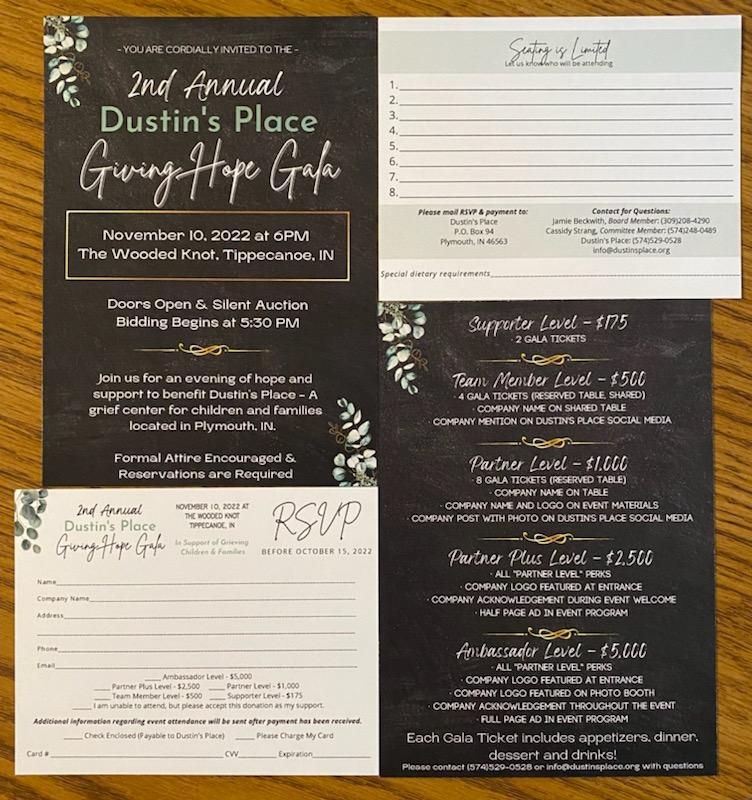 - YOU ARE CORDIALLY INVITED TO THE -
2nd Annual
Dustin's Place
Giving Hope Gala
November 10, 2022 at 6PM
The Wooded Knot, Tippecanoe, IN
Doors Open & Silent Auction
Bidding Begins at 5:30 PM
Join us for an evening of hope and
support to benefit Dustin's Place - A
grief center for children and families
located in Plymouth, IN.
Formal Attire Encouraged &
Reservations are Required
Seating is Limited
Let us know who will be attending
1.
2.
3.
4.
5.
6.
7.
8.
Please mail RSVP & payment to:
Dustin's Place
P.O. Box 94
Plymouth, IN 46563
Contact for Questions:
Jamie Beckwith, Board Member: (309)208-4290
Cassidy Strang, Committee Member: (574)248-0489
Dustin's Place: (574)529-0528
info@dustinsplace.org
Special dietary requirements
2nd Annual
Dustin's Place
Giving Hope Gala
NOVEMBER 10, 2022 AT
THE WOODED KNOT
TIPPECANOE, IN
In Support of Grieving
Children & Families
RSVP
BEFORE OCTOBER 15, 2022
Name
Company Name
Address
Phone
Email
____ Ambassador Level - $5,000
____ Partner Plus Level - $2,500 ____ Partner Level - $1,000
____ Team Member Level - $500 ____ Supporter Level - $175
____ I am unable to attend, but please accept this donation as my support.
Additional information regarding event attendance will be sent after payment has been received.
____ Check Enclosed (Payable to Dustin's Place) ____ Please Charge My Card
Card # ____ CVV ____ Expiration ____
Supporter Level - $175
· 2 GALA TICKETS
Team Member Level - $500
· 4 GALA TICKETS (RESERVED TABLE, SHARED)
· COMPANY NAME ON SHARED TABLE
· COMPANY MENTION ON DUSTIN'S PLACE SOCIAL MEDIA
Partner Level - $1,000
· 8 GALA TICKETS (RESERVED TABLE)
· COMPANY NAME ON TABLE
· COMPANY NAME AND LOGO ON EVENT MATERIALS
· COMPANY POST WITH PHOTO ON DUSTIN'S PLACE SOCIAL MEDIA
Partner Plus Level - $2,500
· ALL "PARTNER LEVEL" PERKS
· COMPANY LOGO FEATURED AT ENTRANCE
· COMPANY ACKNOWLEDGEMENT DURING EVENT WELCOME
· HALF PAGE AD IN EVENT PROGRAM
Ambassador Level - $5,000
· ALL "PARTNER LEVEL" PERKS
· COMPANY LOGO FEATURED AT ENTRANCE
· COMPANY LOGO FEATURED ON PHOTO BOOTH
· COMPANY ACKNOWLEDGEMENT THROUGHOUT THE EVENT
· FULL PAGE AD IN EVENT PROGRAM
Each Gala Ticket includes appetizers, dinner,
dessert and drinks!
Please contact (574)529-0528 or info@dustinsplace.org with questions